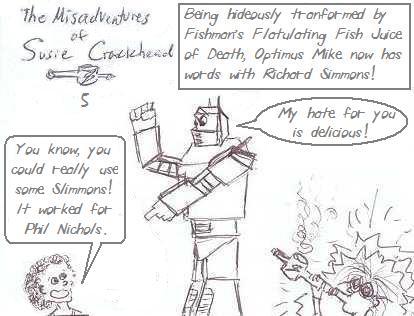 The Misadventures
of
Susie Crackhead
5
Being hideously tranformed by
Fishman's Flatulating Fish Juice
of Death, Optimus Mike now has
words with Richard Simmons!
My hate for you
is delicious!
You know, you
could really use
some Slimmons!
It worked for
Phil Nichols.